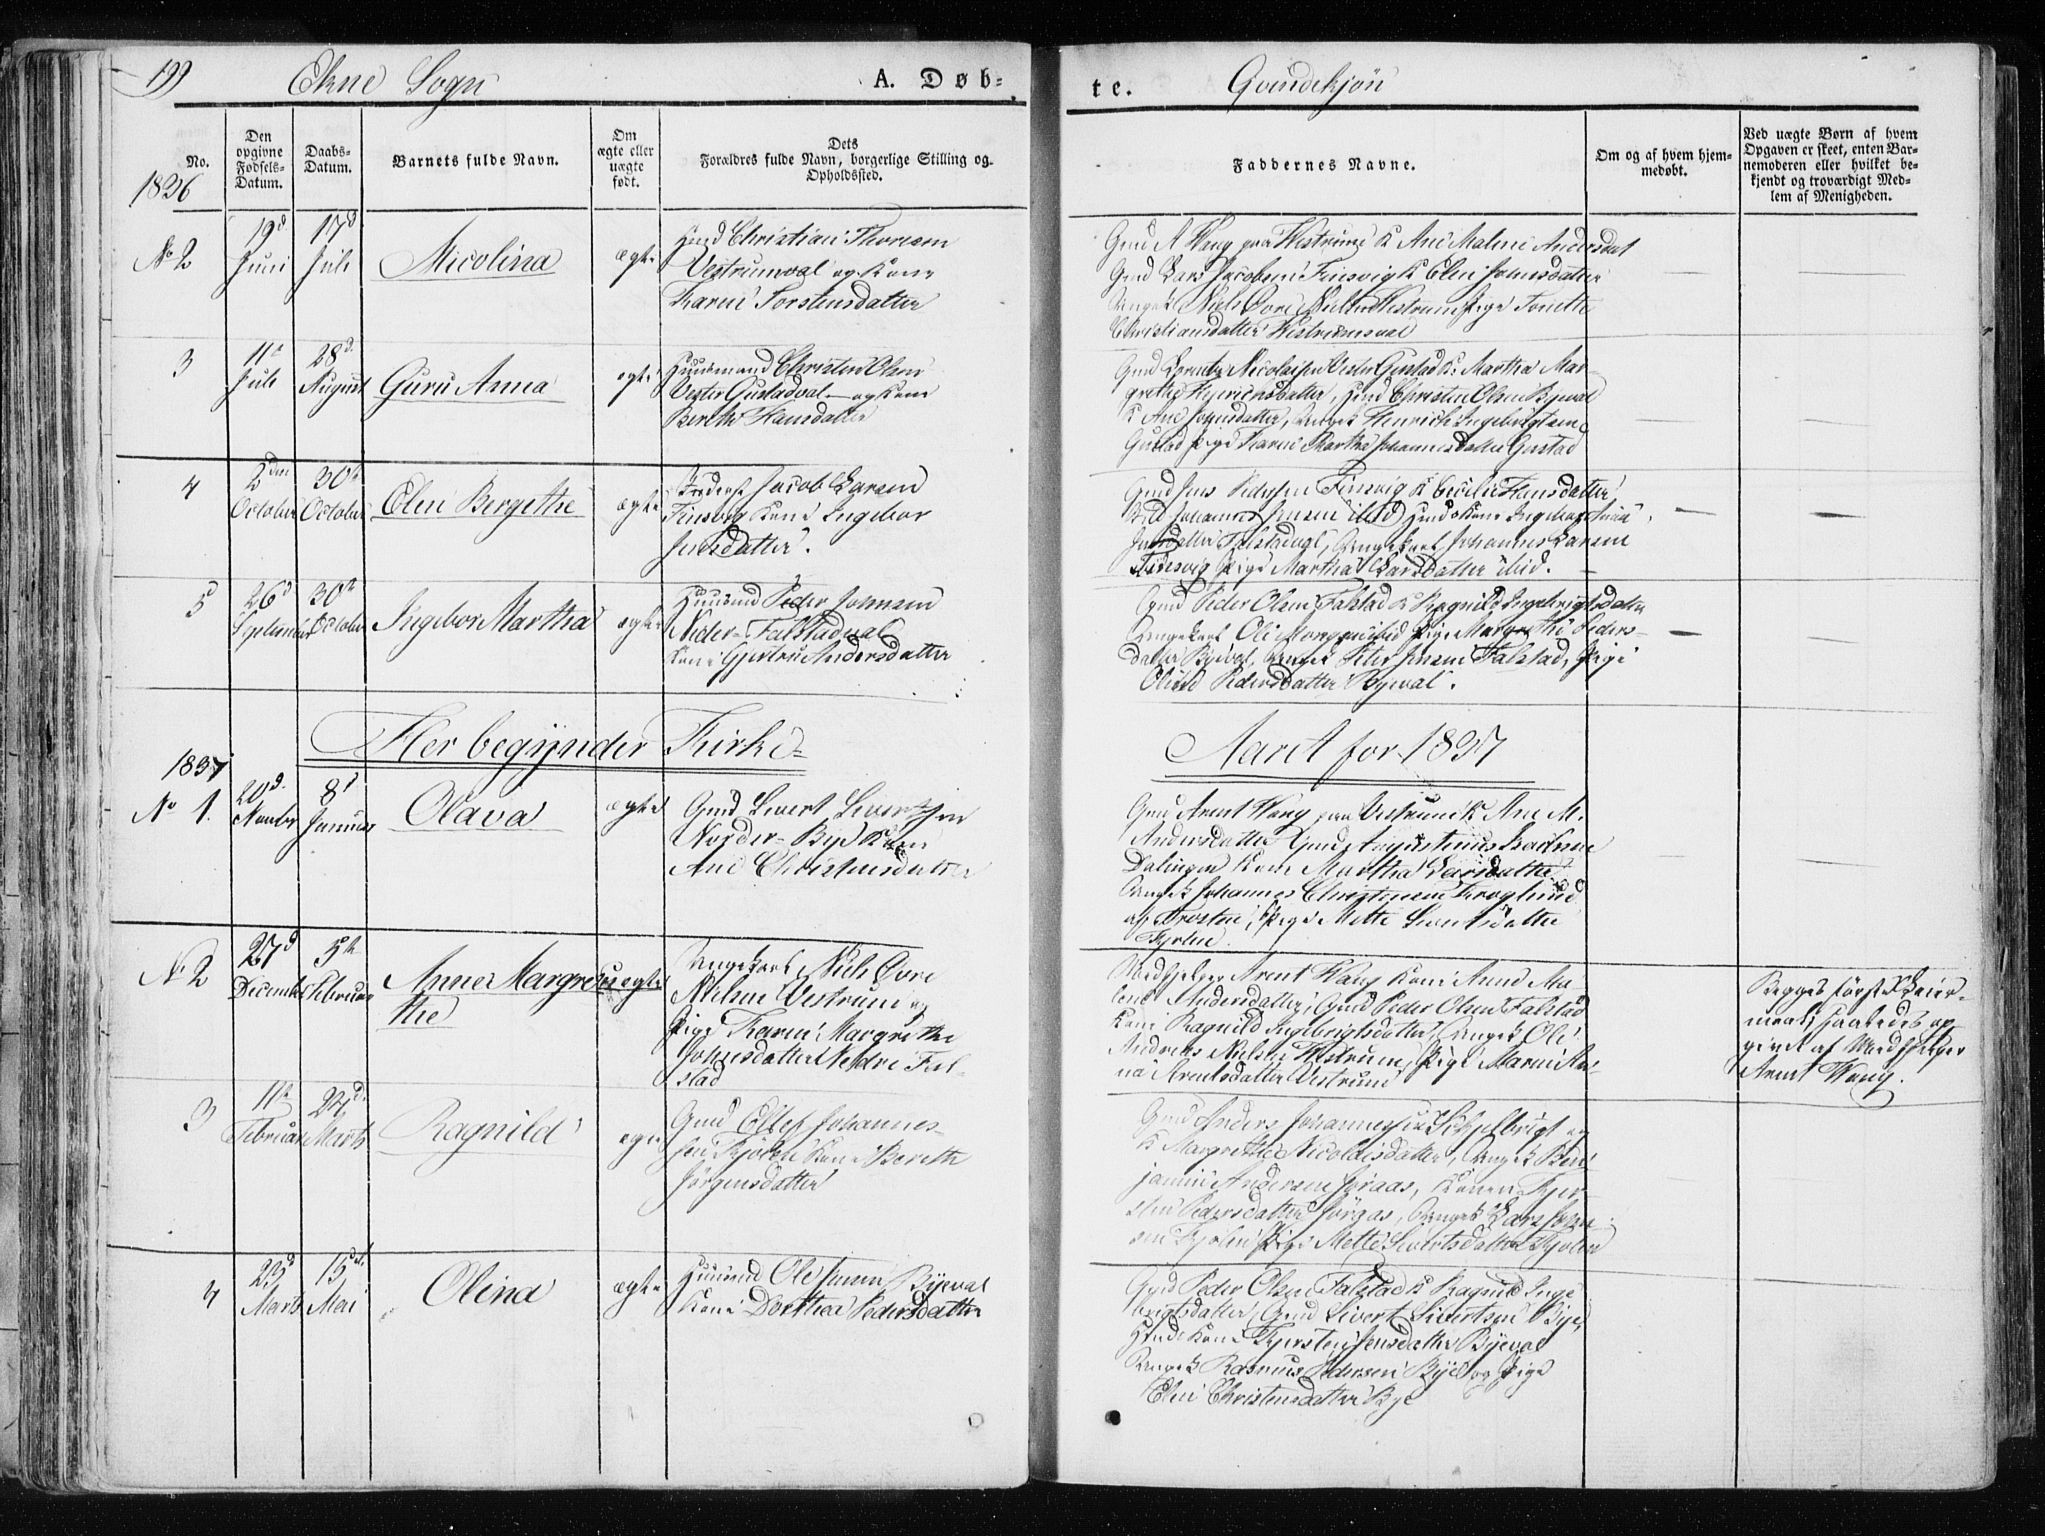 199 Ekne Sogn A. Døb- te. Qvindekjön
No.
Den opgivne Fødsels-Datum.
Daabs-Datum.
Barnets fulde Navn.
Om ægte eller uægte født.
Dets Forældres fulde Navn, borgerlige Stilling og Opholdssted.
Faddernes Navne.
Om og af hvem hjemmedøbt.
Ved uægte Børn af hvem Opgaven er skeet, enten Barnemoderen eller hvilket bekjendt og troværdigt Medlem af Menigheden.
1836
No 2
19d Juni
17d Juli
Nicolina
ægte
Christian
Vestrumval og Kone
Karen Torstensdatter
Gmd A Wang paa Vestrum K Ane Malene Andersdat
Gmd Lars Jacobsen Finsvig K Elen Johnsdatter
Ungk Niels Øvre Nielsen Vestrum Pige Tonette
Christiansdatter Vestrumval
3
11te Juli
28d August
Guru Anna
ægte
Huusmand Christen Olsen
Vester Gustadval og Kone
Bereth Hansdatter
Gmd Nicolaisen Vester Gustad K. Martha Mar-
grethe Henrichsdatter, Hmd Christen Olsen Byeval
K Ane Johnsdatter, Ungk Henrich Ingebrigtsen
Gustad Pige Karen Martha Johannesdatter Gustad
4
2den October
30te October
Elen Bergethe
ægte
Jacob Larsen
Finsvig Kone Ingebor
Jensdatter.
Gmd Jens Pedersen Finsvig K Cecilie Hansdatter
Johannes Jensen ibid Hmds Kone Ingebor Anna
Falstadval, Ungekarl Johannes Larsen
Finsvig Pige Martha Larsdatter ibid.
5
26d September
30te October
Ingebor Martha
ægte
Huusmd Peder Johnsen
Neder-Falstadval
Kone Gjertru Andersdatter
Gmd Peder Olsen Falstad K Ragnild Ingebrigtsdatter
Ungekarl Ole ibid Pige Margrethe Peders-
datter Byeval, Ungk Peter Jensen Falstad, Pige
Oline Pedersdatter Byeval.
Her begÿnder Kirke- Aaret for 1837
1837
No 1.
20d Novbr
8d Januar
Olava
ægte
Gmd Sivert Sivertsen
Nordre-Bye Kone
Ane Christensdatter
Gmd Arent Wang paa Vestrum K Ane M.
Andersdatter Gmd Augustinus
Kone Martha Larsdatter
Ungk Johannes Christensen
Pige Mette Sivertsdatter
Kjölen.
No 2
27d December
5te Februar
Anne Margre-
the
uægte
Ungekarl Niels Øvre
Nielsen Vestrum og
Pige Karen Margrethe
Johnsdatter Nedre Fal-
stad
Medhjelper Arent Wang Kone Anne Ma-
lene Andersdatter, Gmd Peder Olsen Falstad
Kone Ragnild Ingebrigtsdatter, Ungk Ole
Andreas Nielsen Vestrum, Pige Maren An-
na Arentsdatter Vestrum
Begges første Leier-
maal, saaledes op
givet af Medhjelper
Arent Wang.
3
11te Februar
27d Marts
Ragnild
ægte
Gmd Ellef Johannes-
sen Kjölen Kone Bereth
Jörgensdatter
Gmd Anders Johannessen
K Margrethe Nicolaisdatter, Ungk Ben-
jamin Andersen Joraas, Konen Kjer-
sten Pedersdatter Joraas, Ungk Lars
Kjölen Pige Mette Sivertsdatter Kjölen
4
23d Marts
15de Mai
Olina
ægte
Huusmd Ole Jensen Byeval
Kone Dorthea Pedersdatter
Gmd Peder Olsen Falstad K Ragnild Inge
brigtsdatter, Gmd Sivert Sivertsen Bye,
Hmds Kone Kjersten Jensdatter Byeval
Ungk Rasmus Pedersen Bye og Pige
Elen Christensdatter Bye